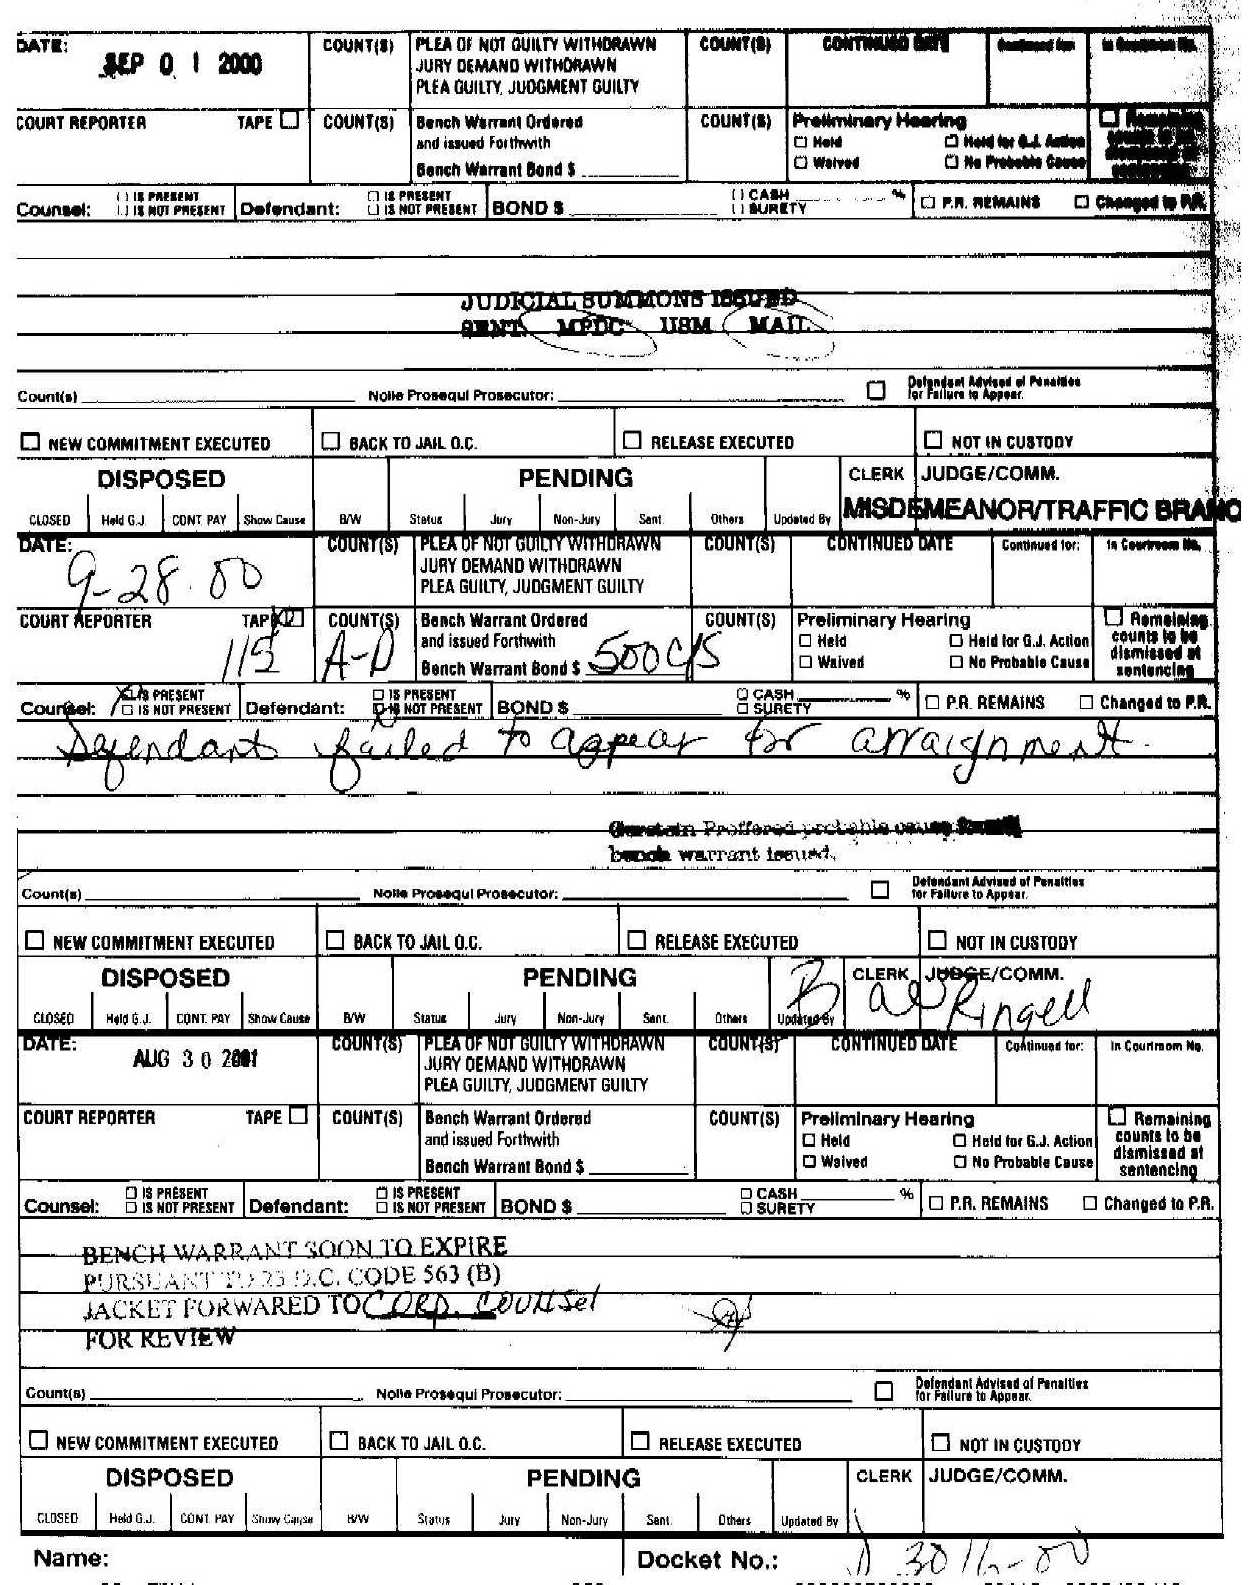 DATE: SEP 0 1 2000 COUNT(S) PLEA OF NOT GUILTY WITHDRAWN COUNT(S) CONTINUED DATE Continued for: In Courtroom No.
JURY DEMAND WITHDRAWN
PLEA GUILTY, JUDGMENT GUILTY
COURT REPORTER TAPE ☐ COUNT(S) Bench Warrant Ordered COUNT(S) Preliminary Hearing ☐ Remaining
and issued Forthwith ☐ Held ☐ Held for G.J. Action
Bench Warrant Bond $ ☐ Waived ☐ No Probable Cause
Counsel: ☐ IS PRESENT ☐ IS NOT PRESENT Defendant: ☐ IS PRESENT ☐ IS NOT PRESENT BOND $ ☐ CASH % ☐ SURETY ☐ P.R. REMAINS ☐ Changed to P.R.
JUDICIAL SUMMONS ISSUED
SENT. MPDC USM MAIL
Count(s) Nolle Prosequi Prosecutor: ☐ Defendant Advised of Penalties for Failure to Appear.
☐ NEW COMMITMENT EXECUTED ☐ BACK TO JAIL O.C. ☐ RELEASE EXECUTED ☐ NOT IN CUSTODY
DISPOSED PENDING CLERK JUDGE/COMM.
MISDEMEANOR/TRAFFIC BRANC
CLOSED Held G.J. CONT. PAY Show Cause B/W Status Jury Non-Jury Sent. Others Updated By
DATE: 9-28-00 COUNT(S) PLEA OF NOT GUILTY WITHDRAWN COUNT(S) CONTINUED DATE Continued for: In Courtroom No.
JURY DEMAND WITHDRAWN
PLEA GUILTY, JUDGMENT GUILTY
COURT REPORTER TAPE ☒ 115 COUNT(S) A-D Bench Warrant Ordered COUNT(S) Preliminary Hearing ☐ Remaining
and issued Forthwith ☐ Held ☐ Held for G.J. Action counts to be
Bench Warrant Bond $ 500 C/S ☐ Waived ☐ No Probable Cause dismissed at
sentencing
Counsel: ☒ IS PRESENT ☐ IS NOT PRESENT Defendant: ☐ IS PRESENT ☒ IS NOT PRESENT BOND $ ☐ CASH % ☐ SURETY ☐ P.R. REMAINS ☐ Changed to P.R.
Defendant failed to appear for arraignment.
Gerstein Proffered probable cause
bench warrant issued.
Count(s) Nolle Prosequi Prosecutor: ☐ Defendant Advised of Penalties for Failure to Appear.
☐ NEW COMMITMENT EXECUTED ☐ BACK TO JAIL O.C. ☐ RELEASE EXECUTED ☐ NOT IN CUSTODY
DISPOSED PENDING CLERK JUDGE/COMM.
Ringell
CLOSED Held G.J. CONT. PAY Show Cause B/W Status Jury Non-Jury Sent. Others Updated By
DATE: AUG 3 0 2001 COUNT(S) PLEA OF NOT GUILTY WITHDRAWN COUNT(S) CONTINUED DATE Continued for: In Courtroom No.
JURY DEMAND WITHDRAWN
PLEA GUILTY, JUDGMENT GUILTY
COURT REPORTER TAPE ☐ COUNT(S) Bench Warrant Ordered COUNT(S) Preliminary Hearing ☐ Remaining
and issued Forthwith ☐ Held ☐ Held for G.J. Action counts to be
Bench Warrant Bond $ ☐ Waived ☐ No Probable Cause dismissed at
sentencing
Counsel: ☐ IS PRESENT ☐ IS NOT PRESENT Defendant: ☐ IS PRESENT ☐ IS NOT PRESENT BOND $ ☐ CASH % ☐ SURETY ☐ P.R. REMAINS ☐ Changed to P.R.
BENCH WARRANT SOON TO EXPIRE
PURSUANT TO 23 D.C. CODE 563 (B)
JACKET FORWARED TO CORP. COUNSEL
FOR REVIEW
Count(s) Nolle Prosequi Prosecutor: ☐ Defendant Advised of Penalties for Failure to Appear.
☐ NEW COMMITMENT EXECUTED ☐ BACK TO JAIL O.C. ☐ RELEASE EXECUTED ☐ NOT IN CUSTODY
DISPOSED PENDING CLERK JUDGE/COMM.
CLOSED Held G.J. CONT. PAY Show Cause B/W Status Jury Non-Jury Sent. Others Updated By
Name: Docket No.: D 3016-00